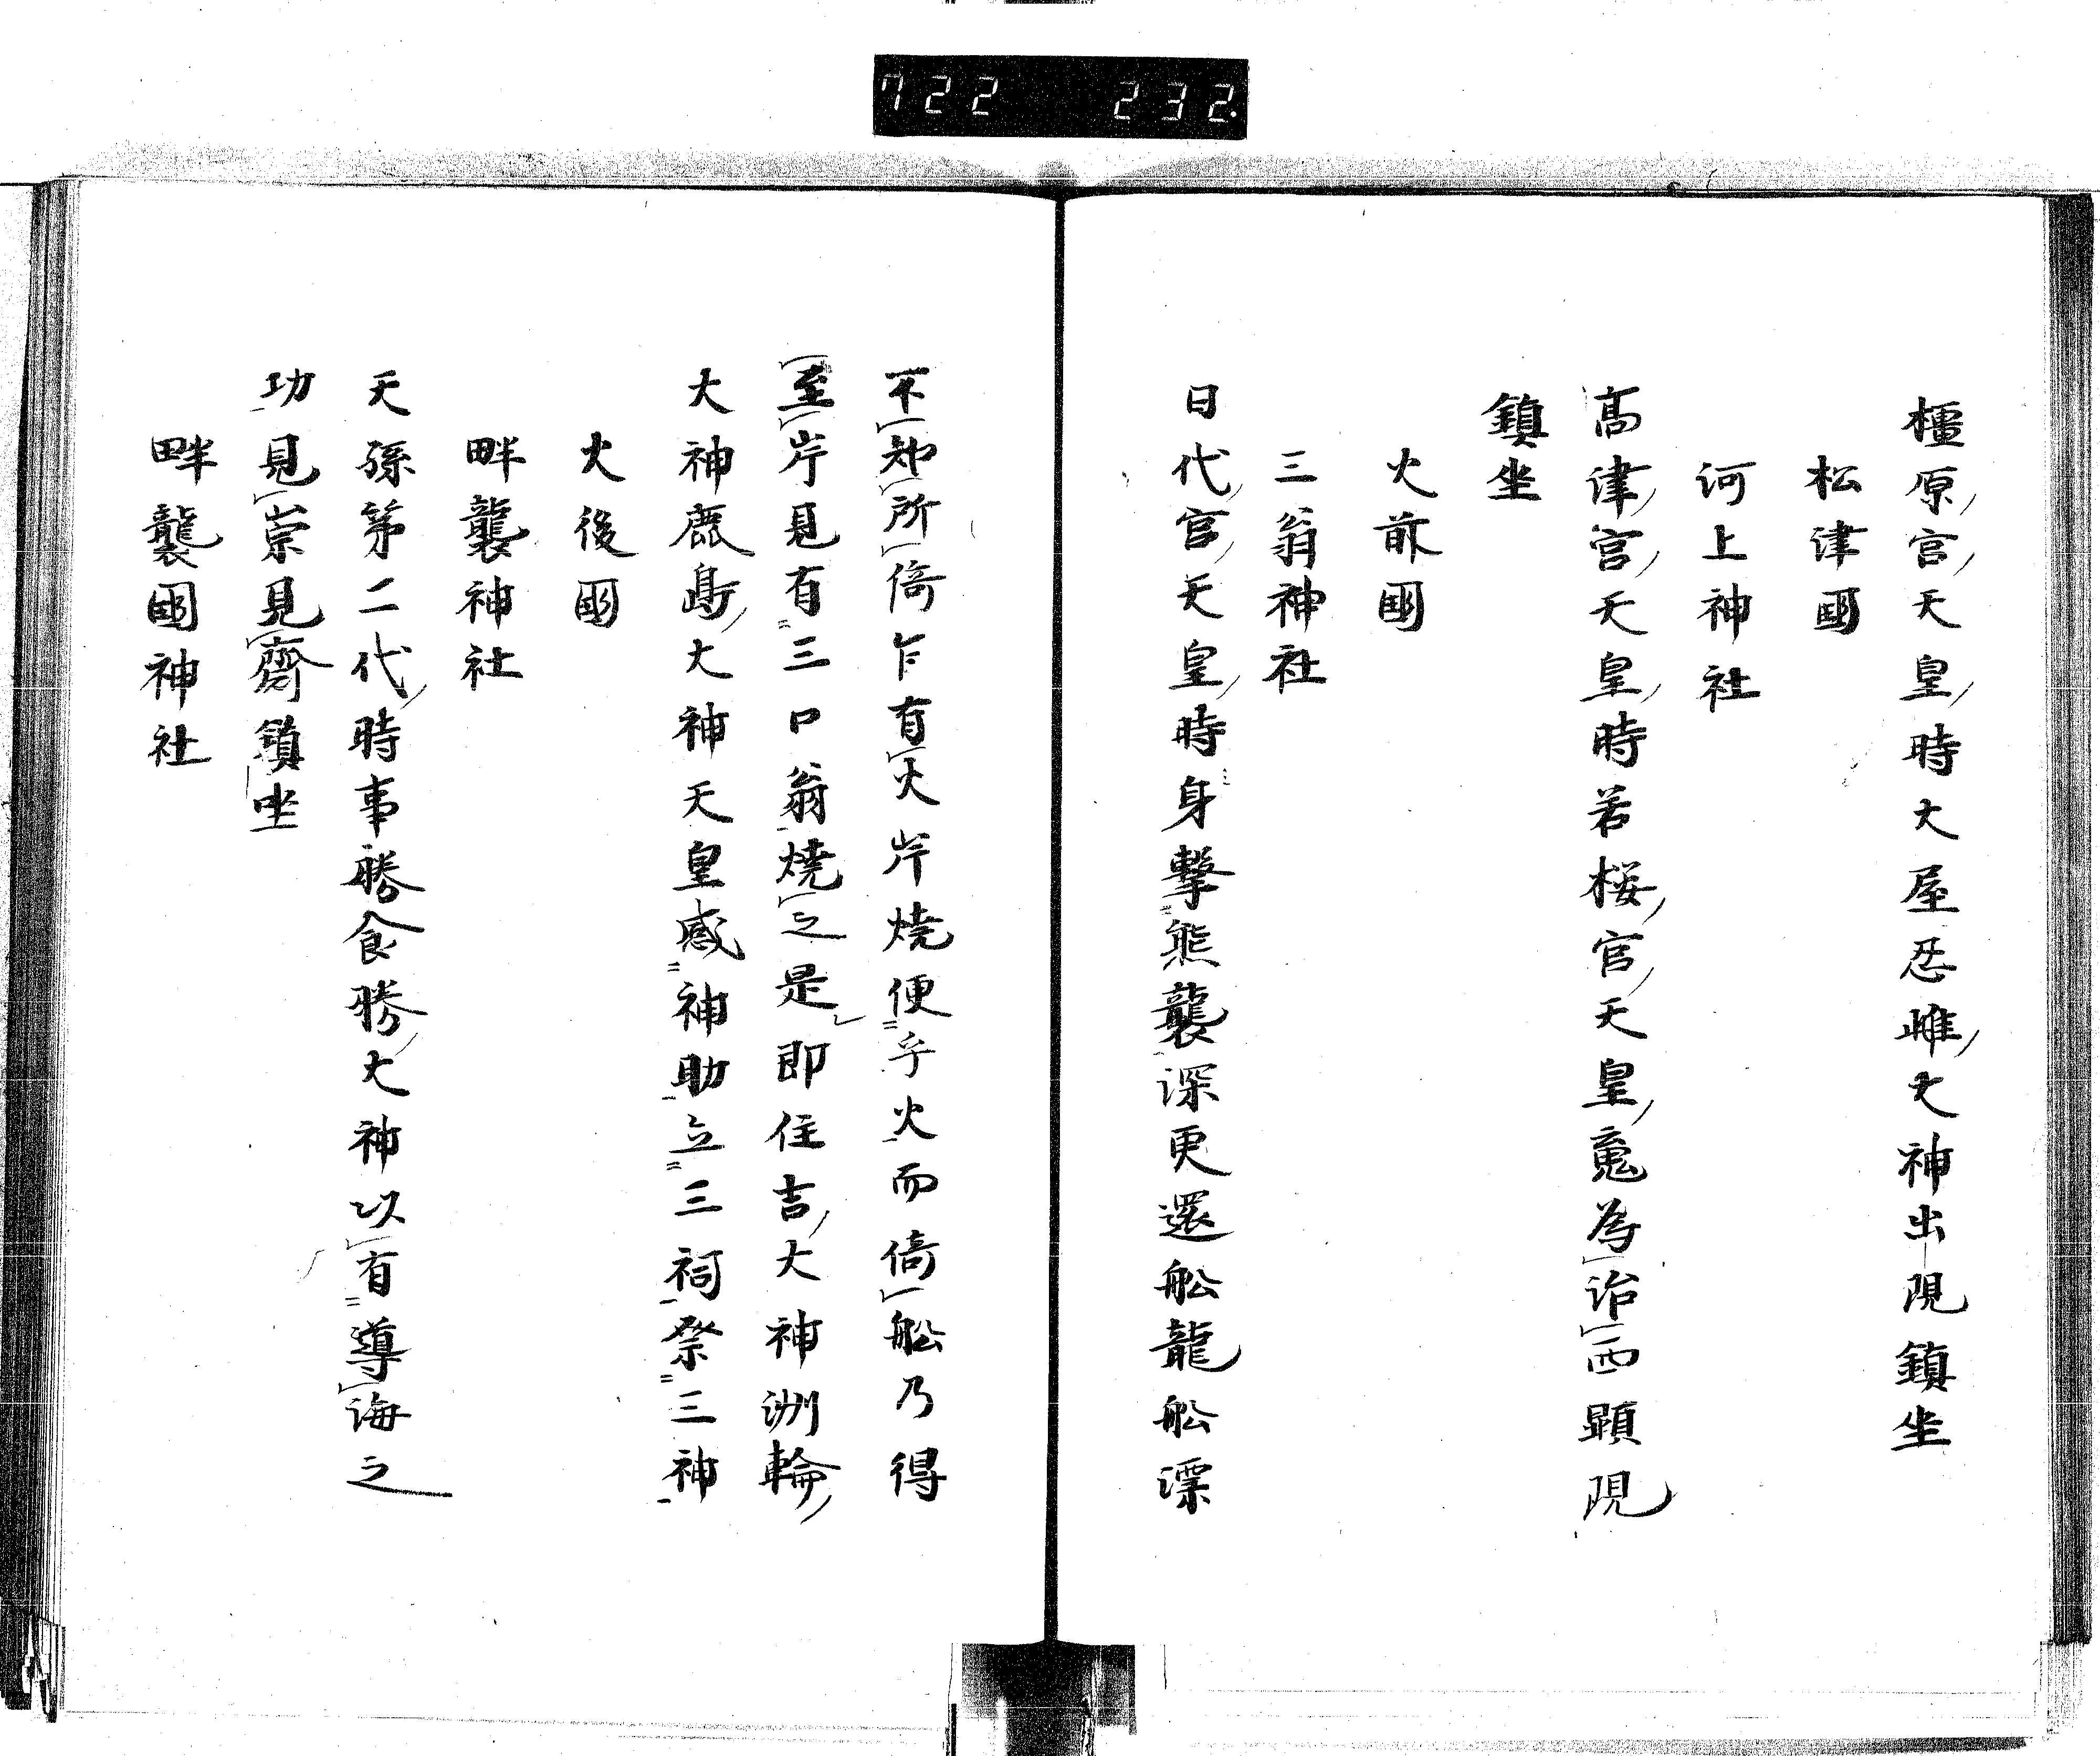 722 232.
橿原宮天皇時大屋忍雌大神出現鎮坐
松津國
河上神社
髙津宮天皇時若桜宮天皇竟為治西顕現
鎮坐
火前國
三翁神社
日代宮天皇時身撃熊襲深更還舩龍舩漂
不知所倚乍有火岸焼便乎火而倚舩乃得
至岸見有三口翁燒之是即住吉大神洲輪
大神鹿島大神天皇感神助立三祠祭三神
火後國
畔襲神社
天孫第二代時事勝食勝大神以有導海之
功見崇見齋鎮坐
畔襲國神社